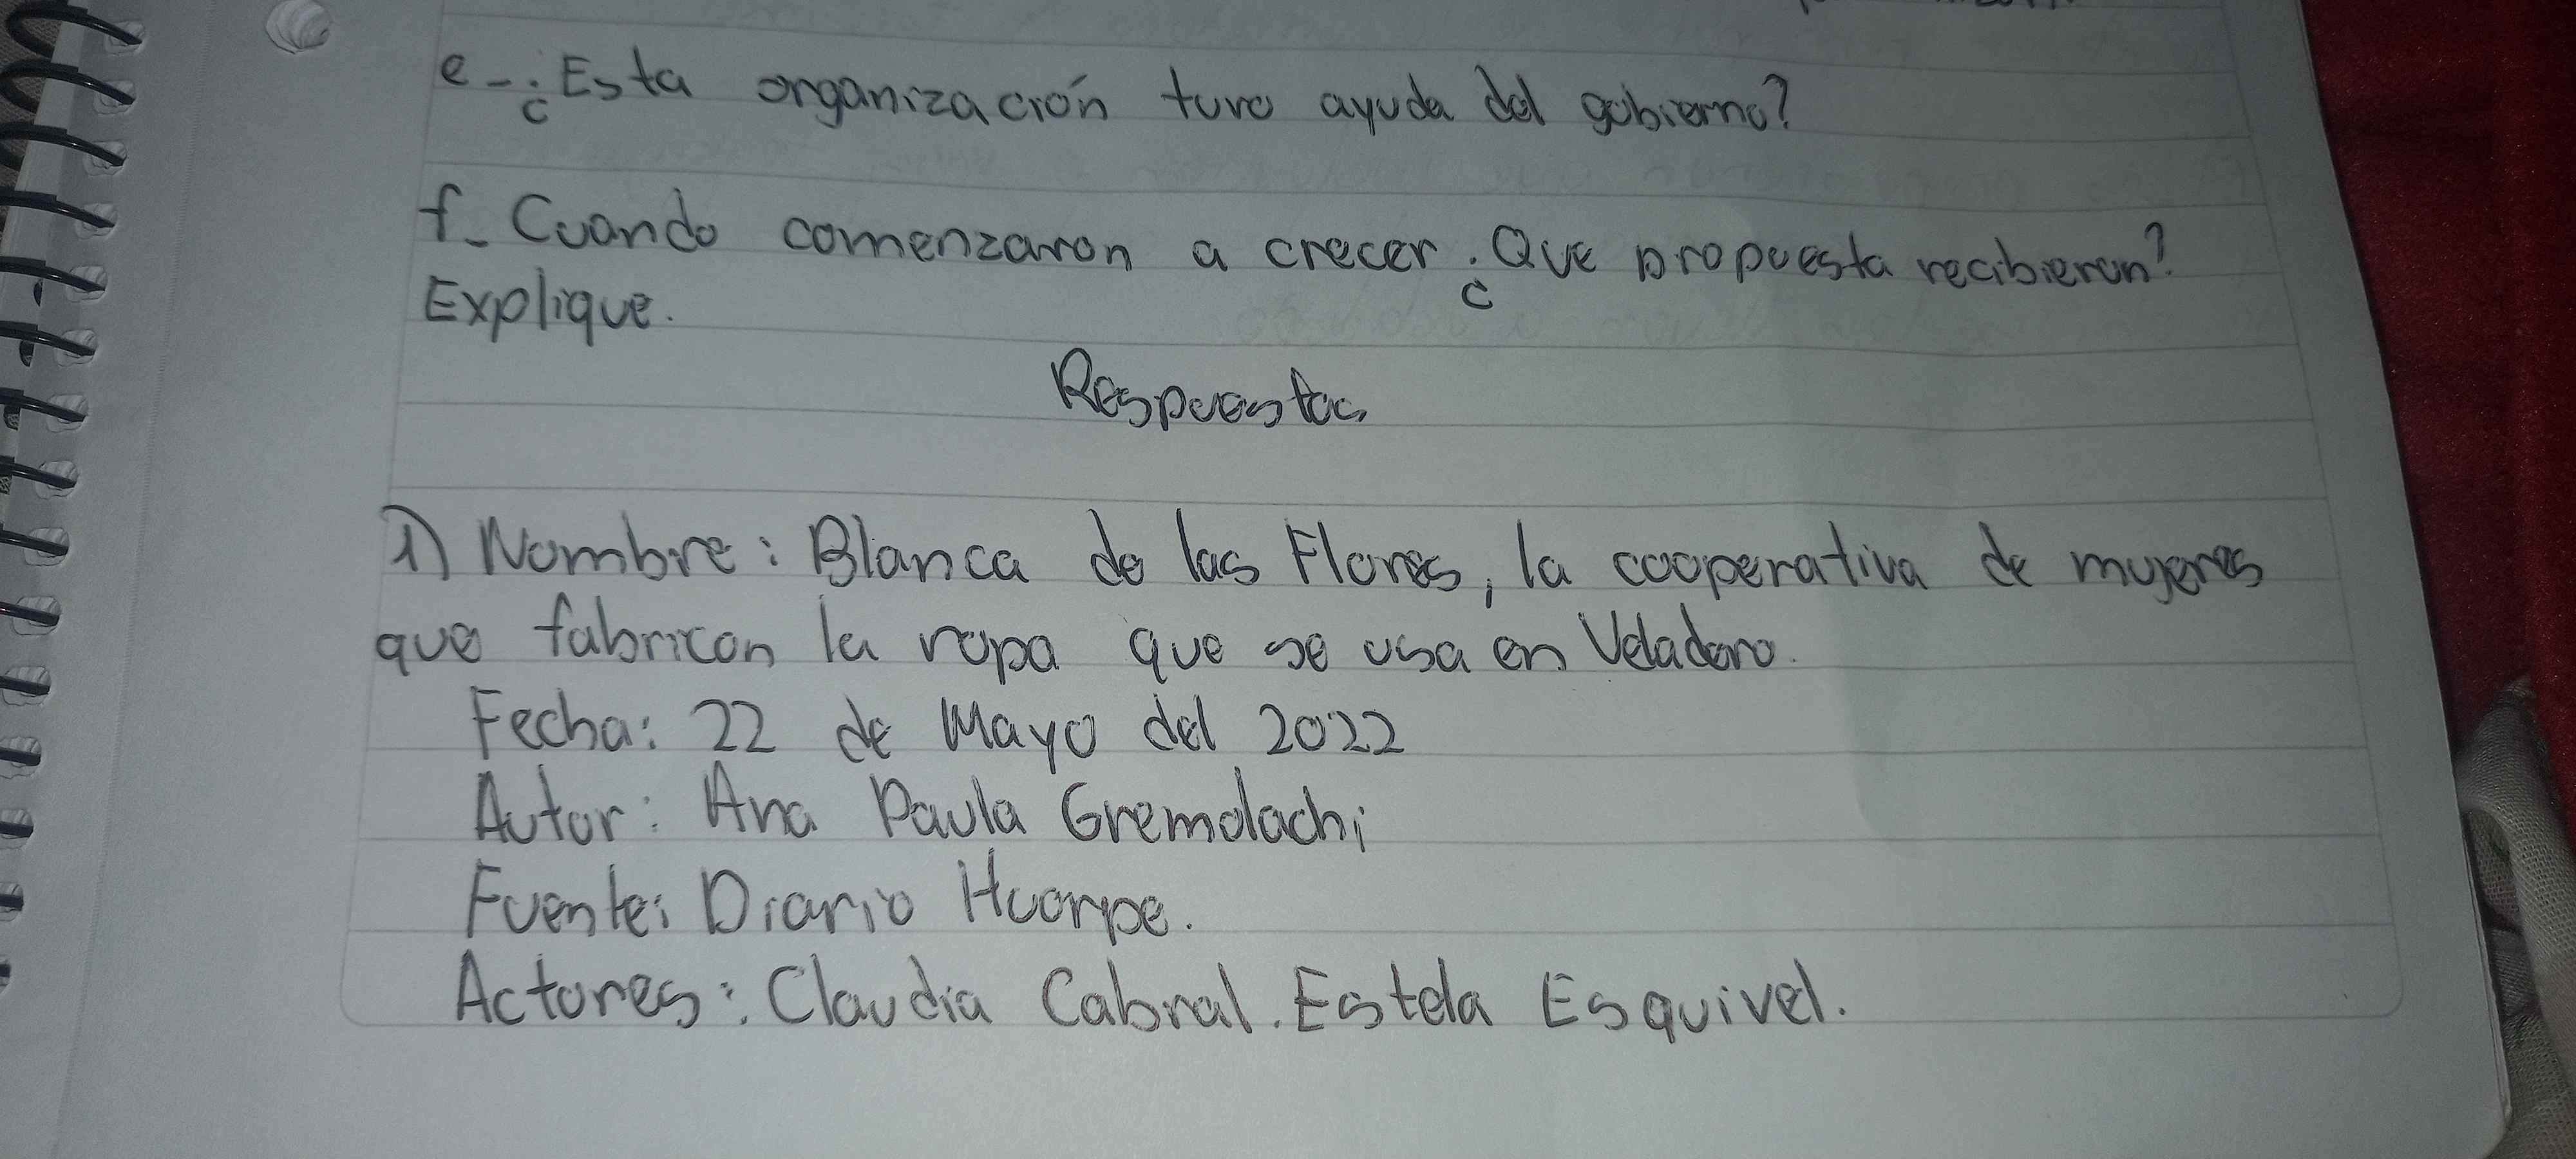 e-¿Esta organización tuvo ayuda del gobierno?
f- Cuando comenzaron a crecer ¿Que propuesta recibieron?
Explique.
Respuestas
1) Nombre: Blanca de las Flores, la cooperativa de mujeres
que fabrican la ropa que se usa en Veladero.
Fecha: 22 de Mayo del 2022
Autor: Ana Paula Gremolachi
Fuente: Diario Huarpe.
Actores: Claudia Cabral. Estela Esquivel.